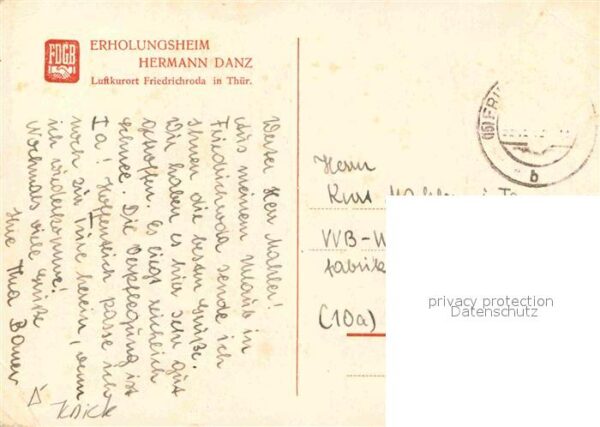 FDGB
ERHOLUNGSHEIM
HERMANN DANZ
Luftkurort Friedrichroda in Thür.
Werter Herr Mahler!
Aus meinem Urlaub in
Friedrichroda sende ich
Ihnen die besten Grüße.
Wir haben es hier sehr gut
getroffen. Es liegt reichlich
Schnee. Die Verpflegung ist
Ia! Hoffentlich passe ich
noch zur Türe herein, wenn
ich wiederkomme!
Nochmals viele Grüße
Ihre Thea Bauer
KNICK
(15) FRI
b
Herrn
Kurt
VVB-W
fabrik
(10a)
privacy protection
Datenschutz